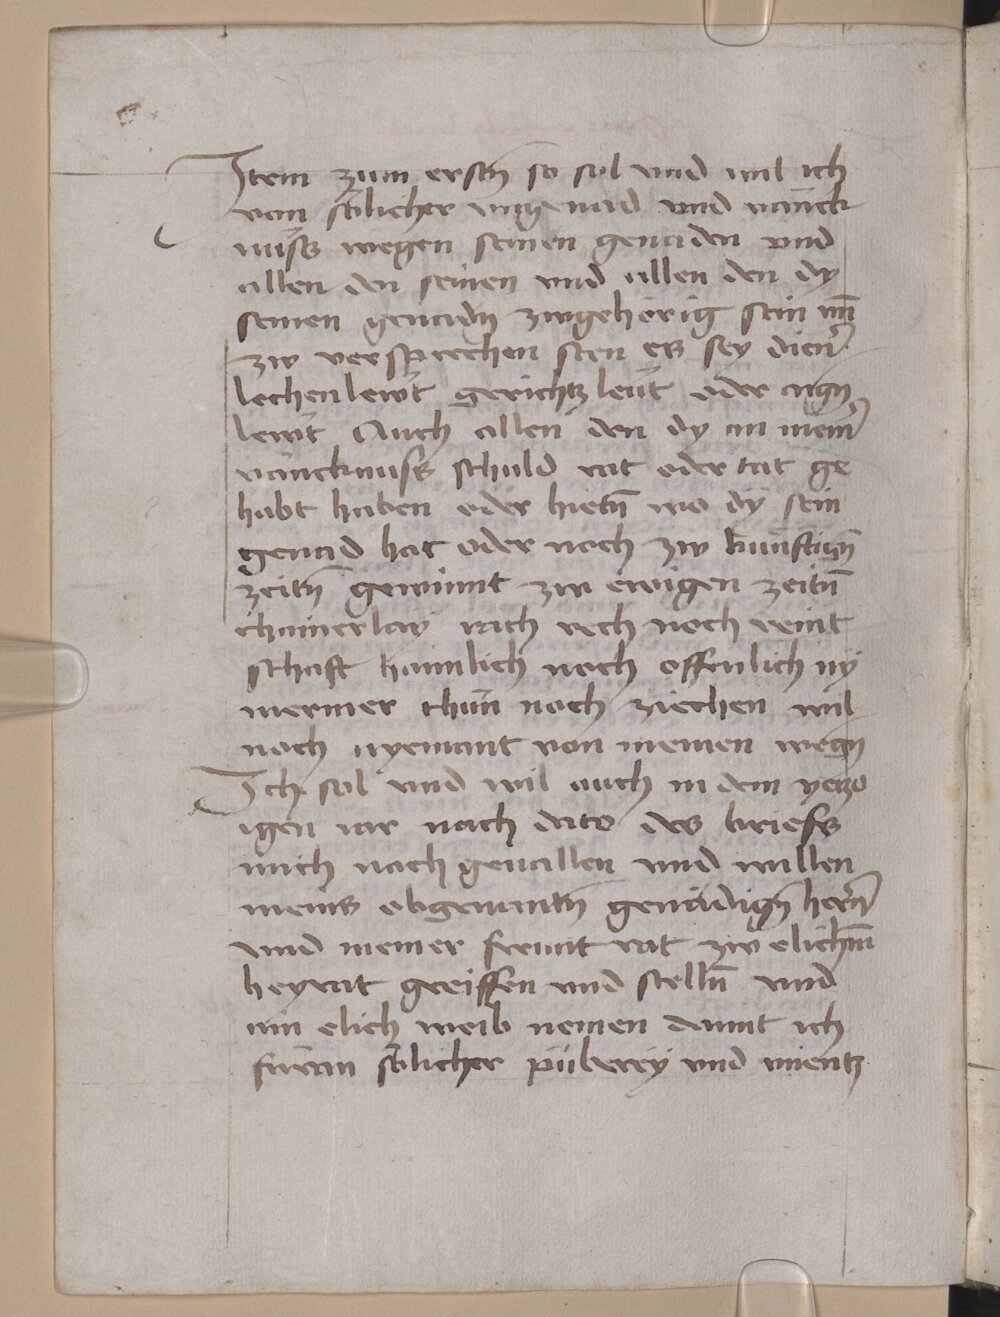 Item zum erstn̄ so sol vnd wil ich
von sölicher vngenad vnd vänck
nüss wegen seinen genaden vnd
allen den seinen vnd allen den dy
seinen genadn̄ zwgehörig sein vn̄
zw versprechen sten es sey dien̄
lechenlewt gerichtz leüt oder aign̄
lewt Auch allen den dy an mein̄
väncknuss schuld rat oder tat ge
habt haben oder hietn̄ wo dy sein
genad hat oder noch zw künftign̄
zeitn̄ gewinnt zw ewigen zeitn̄
chainerlay rach vech noch veint
schaft haimlich noch offenlich ny
mermer thün noch ziechen wil
noch nyemant von meinen wegn̄
Ich sol vnd wil auch in dem yetzo
igen iar nach dato des briefs
mich nach geuallen vnd willen
meins obgenantn̄ genädign̄ hern̄
vnd meiner frewnt rat zw elichm̄
heyrat greiffen vnd stelln̄ vnd
ain elich weib nemen damit ich
füran sölicher püberey vnd